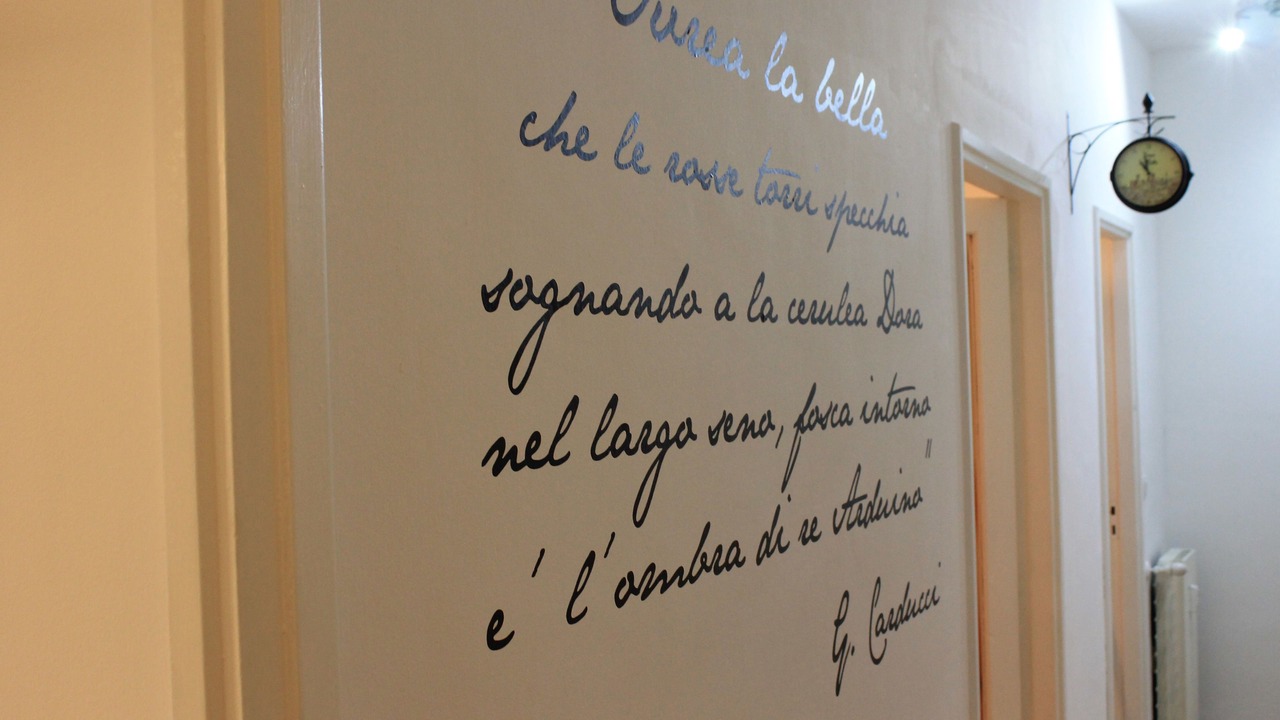 Ivrea la bella
che le rosse torri specchia
sognando a la cerulea Dora
nel largo seno, fosca intorno
e' l'ombra di re Arduino"
G. Carducci